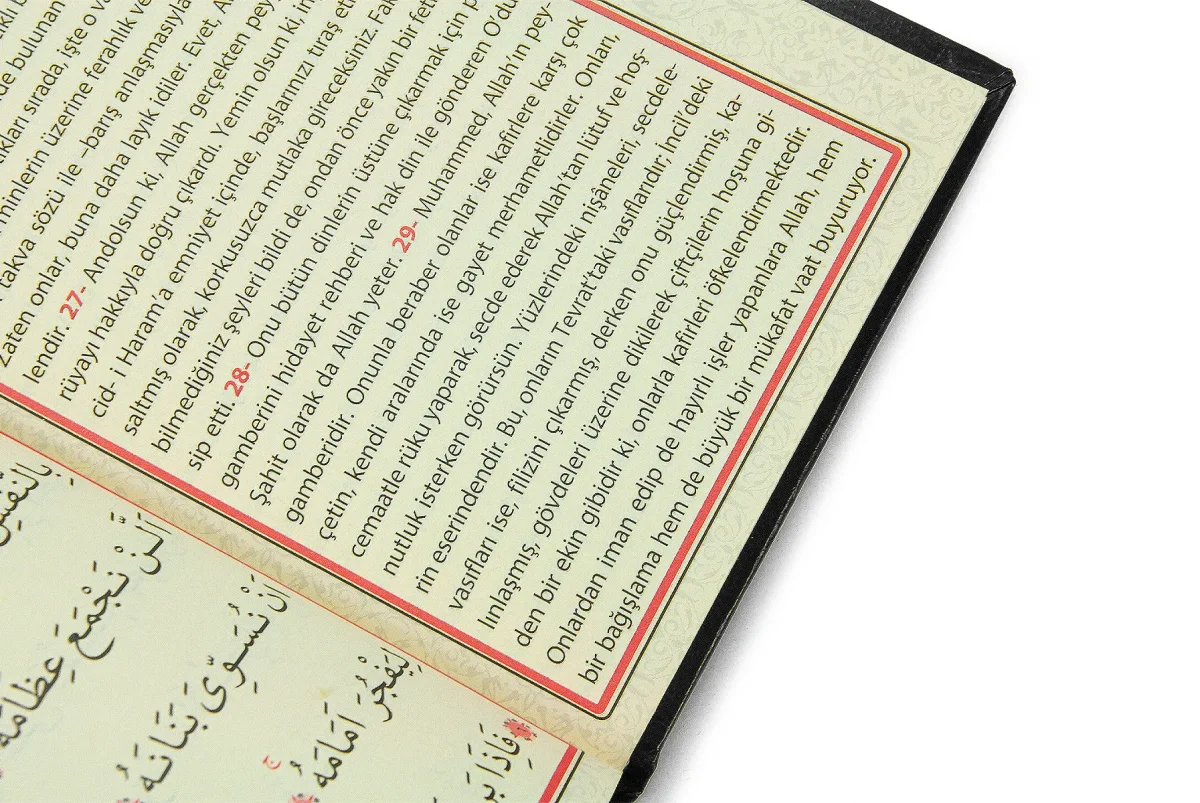 de bulunan
ları sırada, işte o va
minlerin üzerine ferahlık ve
takva sözü ile –barış anlaşmasıyla
Zaten onlar, buna daha layık idiler. Evet, A
lendir. 27- Andolsun ki, Allah gerçekten pey
rüyayı hakkıyla doğru çıkardı. Yemin olsun ki, in
cid- i Haram’a emniyet içinde, başlarınızı tıraş et
saltmış olarak, korkusuzca mutlaka gireceksiniz. Fak
bilmediğiniz şeyleri bildi de, ondan önce yakın bir fet
sip etti. 28- Onu bütün dinlerin üstüne çıkarmak için p
gamberini hidayet rehberi ve hak din ile gönderen O’du
Şahit olarak da Allah yeter. 29- Muhammed, Allah’ın pey-
gamberidir. Onunla beraber olanlar ise kafirlere karşı çok
çetin, kendi aralarında ise gayet merhametlidirler. Onları,
cemaatle rüku yaparak, secde ederek Allah’tan lütuf ve hoş-
nutluk isterken görürsün. Yüzlerindeki nişâneleri, secdele-
rin eserindendir. Bu, onların Tevrat’taki vasıflarıdır, İncil’deki
vasıfları ise, filizini çıkarmış, derken onu güçlendirmiş, ka-
lınlaşmış, gövdeleri üzerine dikilerek çiftçilerin hoşuna gi-
den bir ekin gibidir ki, onlarla kafirleri öfkelendirmektedir.
Onlardan iman edip de hayırlı işler yapanlara Allah, hem
bir bağışlama hem de büyük bir mükafat vaat buyuruyor.
بِالنَّفْسِ
اَلَّنْ نَجْمَعَ عِظَامَهُ
اَنْ نُسَوِّىَ بَنَانَهُ
لِيَفْجُرَ اَمَامَهُ
فَاِذَا